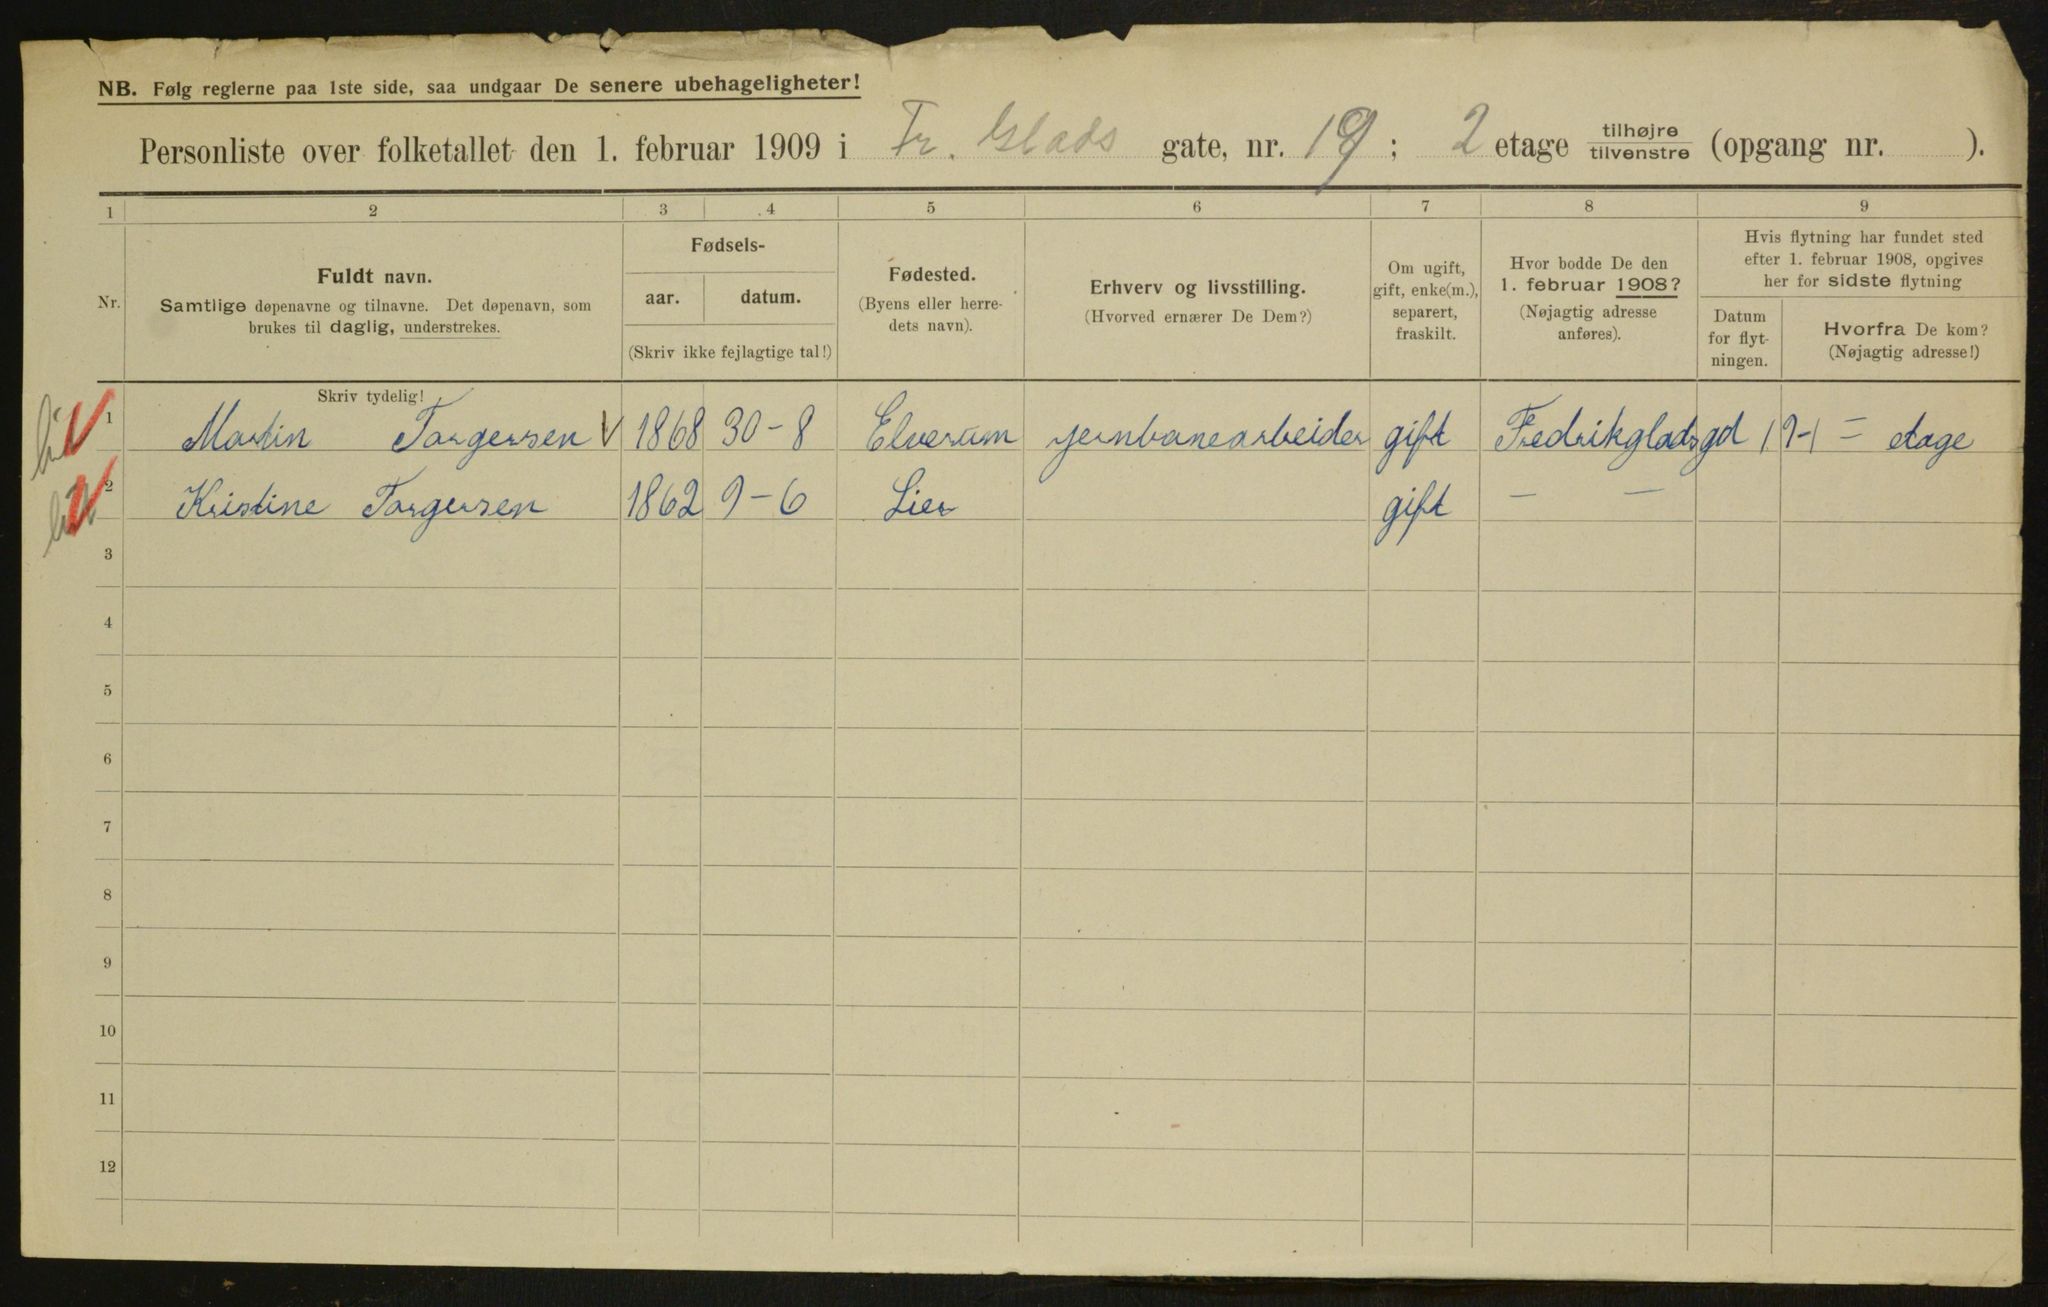 NB. Følg reglerne paa 1ste side, saa undgaar De senere ubehageligheter!
Personliste over folketallet den 1. februar 1909 i Fr. Glads gate, nr. 19; 2 etage tilhøjre tilvenstre (opgang nr. ).
1 2 3 4 5 6 7 8 9
Nr.
Fuldt navn.
Samtlige døpenavne og tilnavne. Det døpenavn, som
brukes til daglig, understrekes.
Fødsels-
aar. datum.
(Skriv ikke fejlagtige tal!)
Fødested.
(Byens eller herre-
dets navn).
Erhverv og livsstilling.
(Hvorved ernærer De Dem?)
Om ugift,
gift, enke(m.),
separert,
fraskilt.
Hvor bodde De den
1. februar 1908?
(Nøjagtig adresse
anføres).
Hvis flytning har fundet sted
efter 1. februar 1908, opgives
her for sidste flytning
Datum
for flyt-
ningen.
Hvorfra De kom?
(Nøjagtig adresse!)
Skriv tydelig!
1 Martin Torgersen 1868 30-8 Elverum jernbanearbeider gift Fredrikgladsgd 19-1 = etage
2 Kristine Torgersen 1862 9-6 Lier gift — —
3
4
5
6
7
8
9
10
11
12